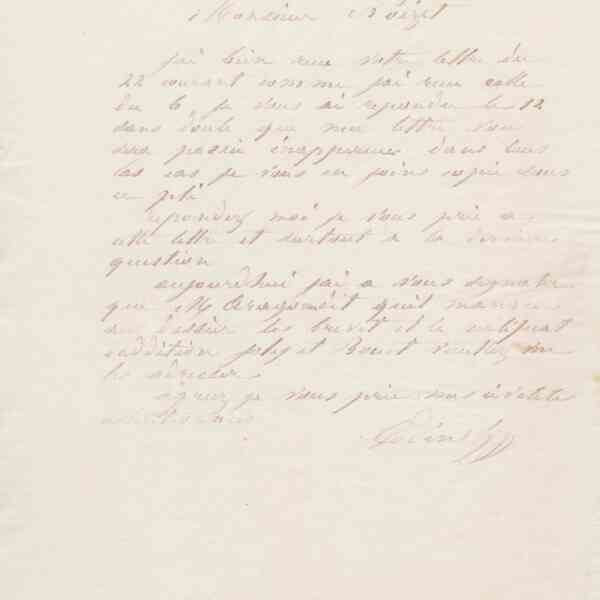 Monsieur Noizet
j'ai bien recu votre lettre du
22 courant comme j'ai recu celle
du 6 je vous ai repondu le 12
sans doute que ma lettre vous
sera passée inappercue dans tous
les cas je vous en joins copie sous
ce pli
repondez moi je vous prie a
cette lettre et surtout a la derniere
question
aujourdhui j'ai a vous signaler
que M quil manque
au dossier les brevet et le certificat
daddition veuillez me
les adresser
agreez je vous prie mes